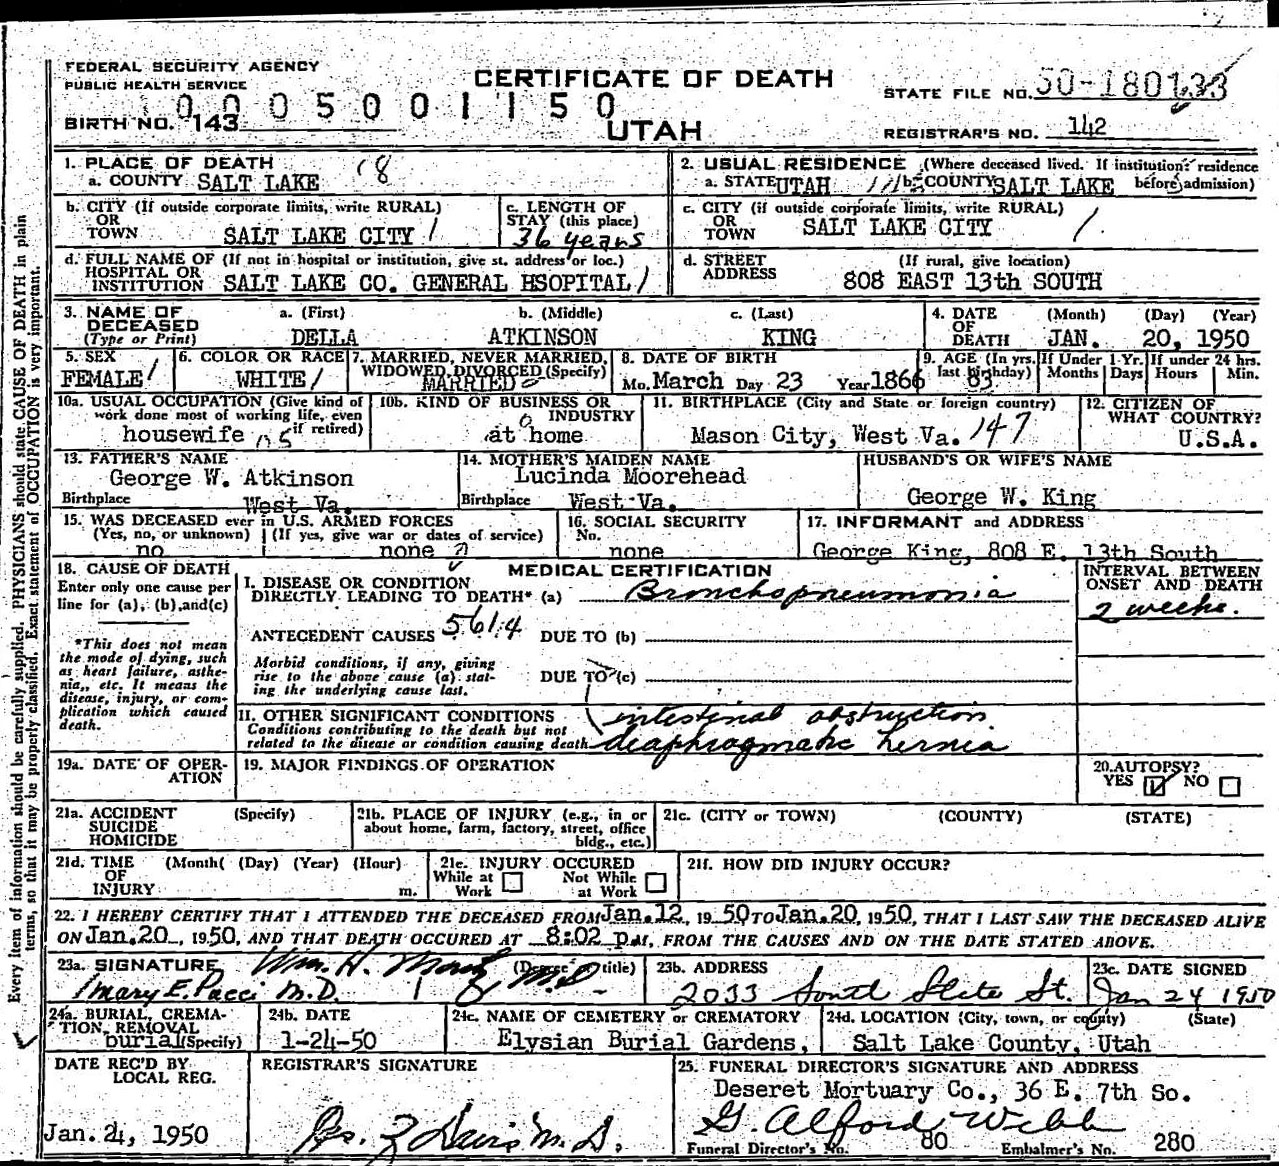 FEDERAL SECURITY AGENCY
PUBLIC HEALTH SERVICE
CERTIFICATE OF DEATH
UTAH
STATE FILE NO. 50-180133
0005001150
BIRTH NO. 143
REGISTRAR'S NO. 142
1. PLACE OF DEATH 18
a. COUNTY SALT LAKE
2. USUAL RESIDENCE (Where deceased lived. If institution: residence before admission)
a. STATE UTAH b. COUNTY SALT LAKE
b. CITY (If outside corporate limits, write RURAL)
OR
TOWN SALT LAKE CITY /
c. LENGTH OF
STAY (this place)
36 years
c. CITY (if outside corporate limits, write RURAL)
OR
TOWN SALT LAKE CITY /
d. FULL NAME OF (If not in hospital or institution, give st. address or loc.)
HOSPITAL OR
INSTITUTION SALT LAKE CO. GENERAL HSOPITAL /
d. STREET (If rural, give location)
ADDRESS 808 EAST 13th SOUTH
3. NAME OF DECEASED
(Type or Print)
a. (First) b. (Middle) c. (Last)
DELLA ATKINSON KING
4. DATE OF DEATH (Month) (Day) (Year)
JAN. 20, 1950
5. SEX
FEMALE /
6. COLOR OR RACE
WHITE /
7. MARRIED, NEVER MARRIED,
WIDOWED, DIVORCED (Specify)
MARRIED
8. DATE OF BIRTH
Mo. March Day 23 Year 1866
9. AGE (In yrs. last birthday)
83
If Under 1 Yr. Months Days
If under 24 hrs. Hours Min.
10a. USUAL OCCUPATION (Give kind of
work done most of working life, even
if retired)
housewife
10b. KIND OF BUSINESS OR
INDUSTRY
at home
11. BIRTHPLACE (City and State or foreign country)
Mason City, West Va. 147
12. CITIZEN OF
WHAT COUNTRY?
U.S.A.
13. FATHER'S NAME
George W. Atkinson
Birthplace West Va.
14. MOTHER'S MAIDEN NAME
Lucinda Moorehead
Birthplace West Va.
HUSBAND'S OR WIFE'S NAME
George W. King
15. WAS DECEASED ever in U.S. ARMED FORCES
(Yes, no, or unknown) (If yes, give war or dates of service)
no none
16. SOCIAL SECURITY
No.
none
17. INFORMANT and ADDRESS
George King, 808 E. 13th South
18. CAUSE OF DEATH
Enter only one cause per
line for (a), (b), and (c)
*This does not mean
the mode of dying, such
as heart failure, asthe-
nia,, etc. It means the
disease, injury, or com-
plication which caused
death.
MEDICAL CERTIFICATION
I. DISEASE OR CONDITION
DIRECTLY LEADING TO DEATH* (a) Bronchopneumonia
INTERVAL BETWEEN
ONSET AND DEATH
2 weeks.
ANTECEDENT CAUSES 561.4 DUE TO (b)
Morbid conditions, if any, giving
rise to the above cause (a) stat-
ing the underlying cause last.
DUE TO (c)
II. OTHER SIGNIFICANT CONDITIONS
Conditions contributing to the death but not
related to the disease or condition causing death
intestinal obstruction
diaphragmatic hernia
19a. DATE OF OPER-
ATION
19. MAJOR FINDINGS OF OPERATION
20. AUTOPSY?
YES NO
21a. ACCIDENT (Specify)
SUICIDE
HOMICIDE
21b. PLACE OF INJURY (e.g., in or
about home, farm, factory, street, office
bldg., etc.)
21c. (CITY or TOWN) (COUNTY) (STATE)
21d. TIME (Month( (Day) (Year) (Hour)
OF
INJURY m.
21e. INJURY OCCURED
While at Work Not While at Work
21f. HOW DID INJURY OCCUR?
22. I HEREBY CERTIFY THAT I ATTENDED THE DECEASED FROM Jan. 12, 1950 TO Jan. 20, 1950, THAT I LAST SAW THE DECEASED ALIVE
ON Jan. 20, 1950, AND THAT DEATH OCCURED AT 8:02 p.M, FROM THE CAUSES AND ON THE DATE STATED ABOVE.
23a. SIGNATURE (Degree or title)
Wm. H. M.D.
Mary E. Pacci M.D.
23b. ADDRESS
2033 South State St.
23c. DATE SIGNED
Jan 24 1950
24a. BURIAL, CREMA-
TION, REMOVAL
burial (Specify)
24b. DATE
1-24-50
24c. NAME OF CEMETERY or CREMATORY
Elysian Burial Gardens,
24d. LOCATION (City, town, or county) (State)
Salt Lake County, Utah
DATE REC'D BY
LOCAL REG.
Jan. 24, 1950
REGISTRAR'S SIGNATURE
Davis M.D.
25. FUNERAL DIRECTOR'S SIGNATURE AND ADDRESS
Deseret Mortuary Co., 36 E. 7th So.
G. Alford Webb
Funeral Director's No. 80 Embalmer's No. 280
Every item of information should be carefully supplied. PHYSICIANS should state CAUSE OF DEATH in plain
terms, so that it may be properly classified. Exact statement of OCCUPATION is very important.